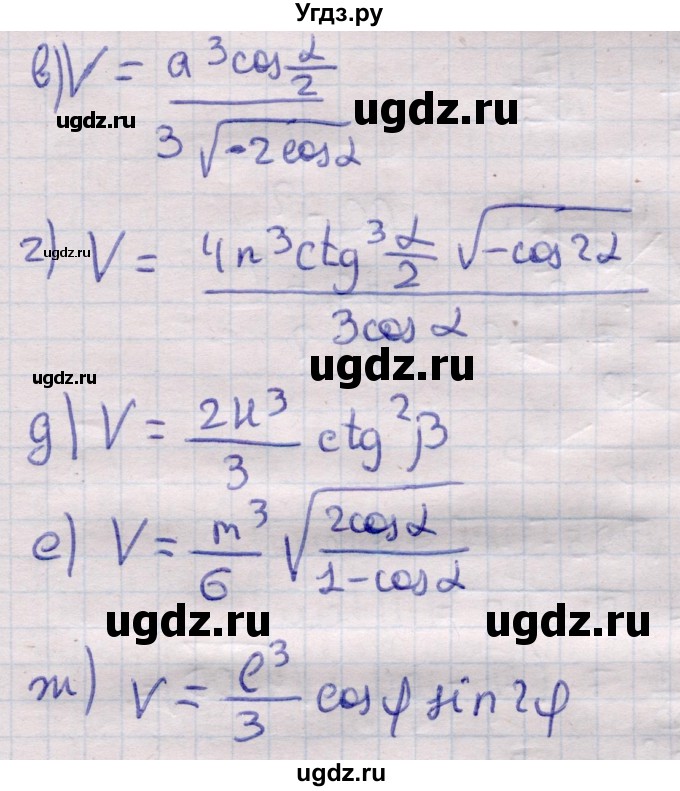 Угдз.ру
в) V = a³cos α/2 / 3√-2cosα
ugdz.ru ugdz.ru
г) V = 4n³ctg³ α/2 √-cos2α / 3cosα
ugdz.ru
ugdz.ru
ugdz.ru
д) V = 2H³/3 ctg²β
е) V = m³/6 √2cosα/1-cosα
ugdz.ru ugdz.ru
ж) V = l³/3 cosφ sin2φ
ugdz.ru